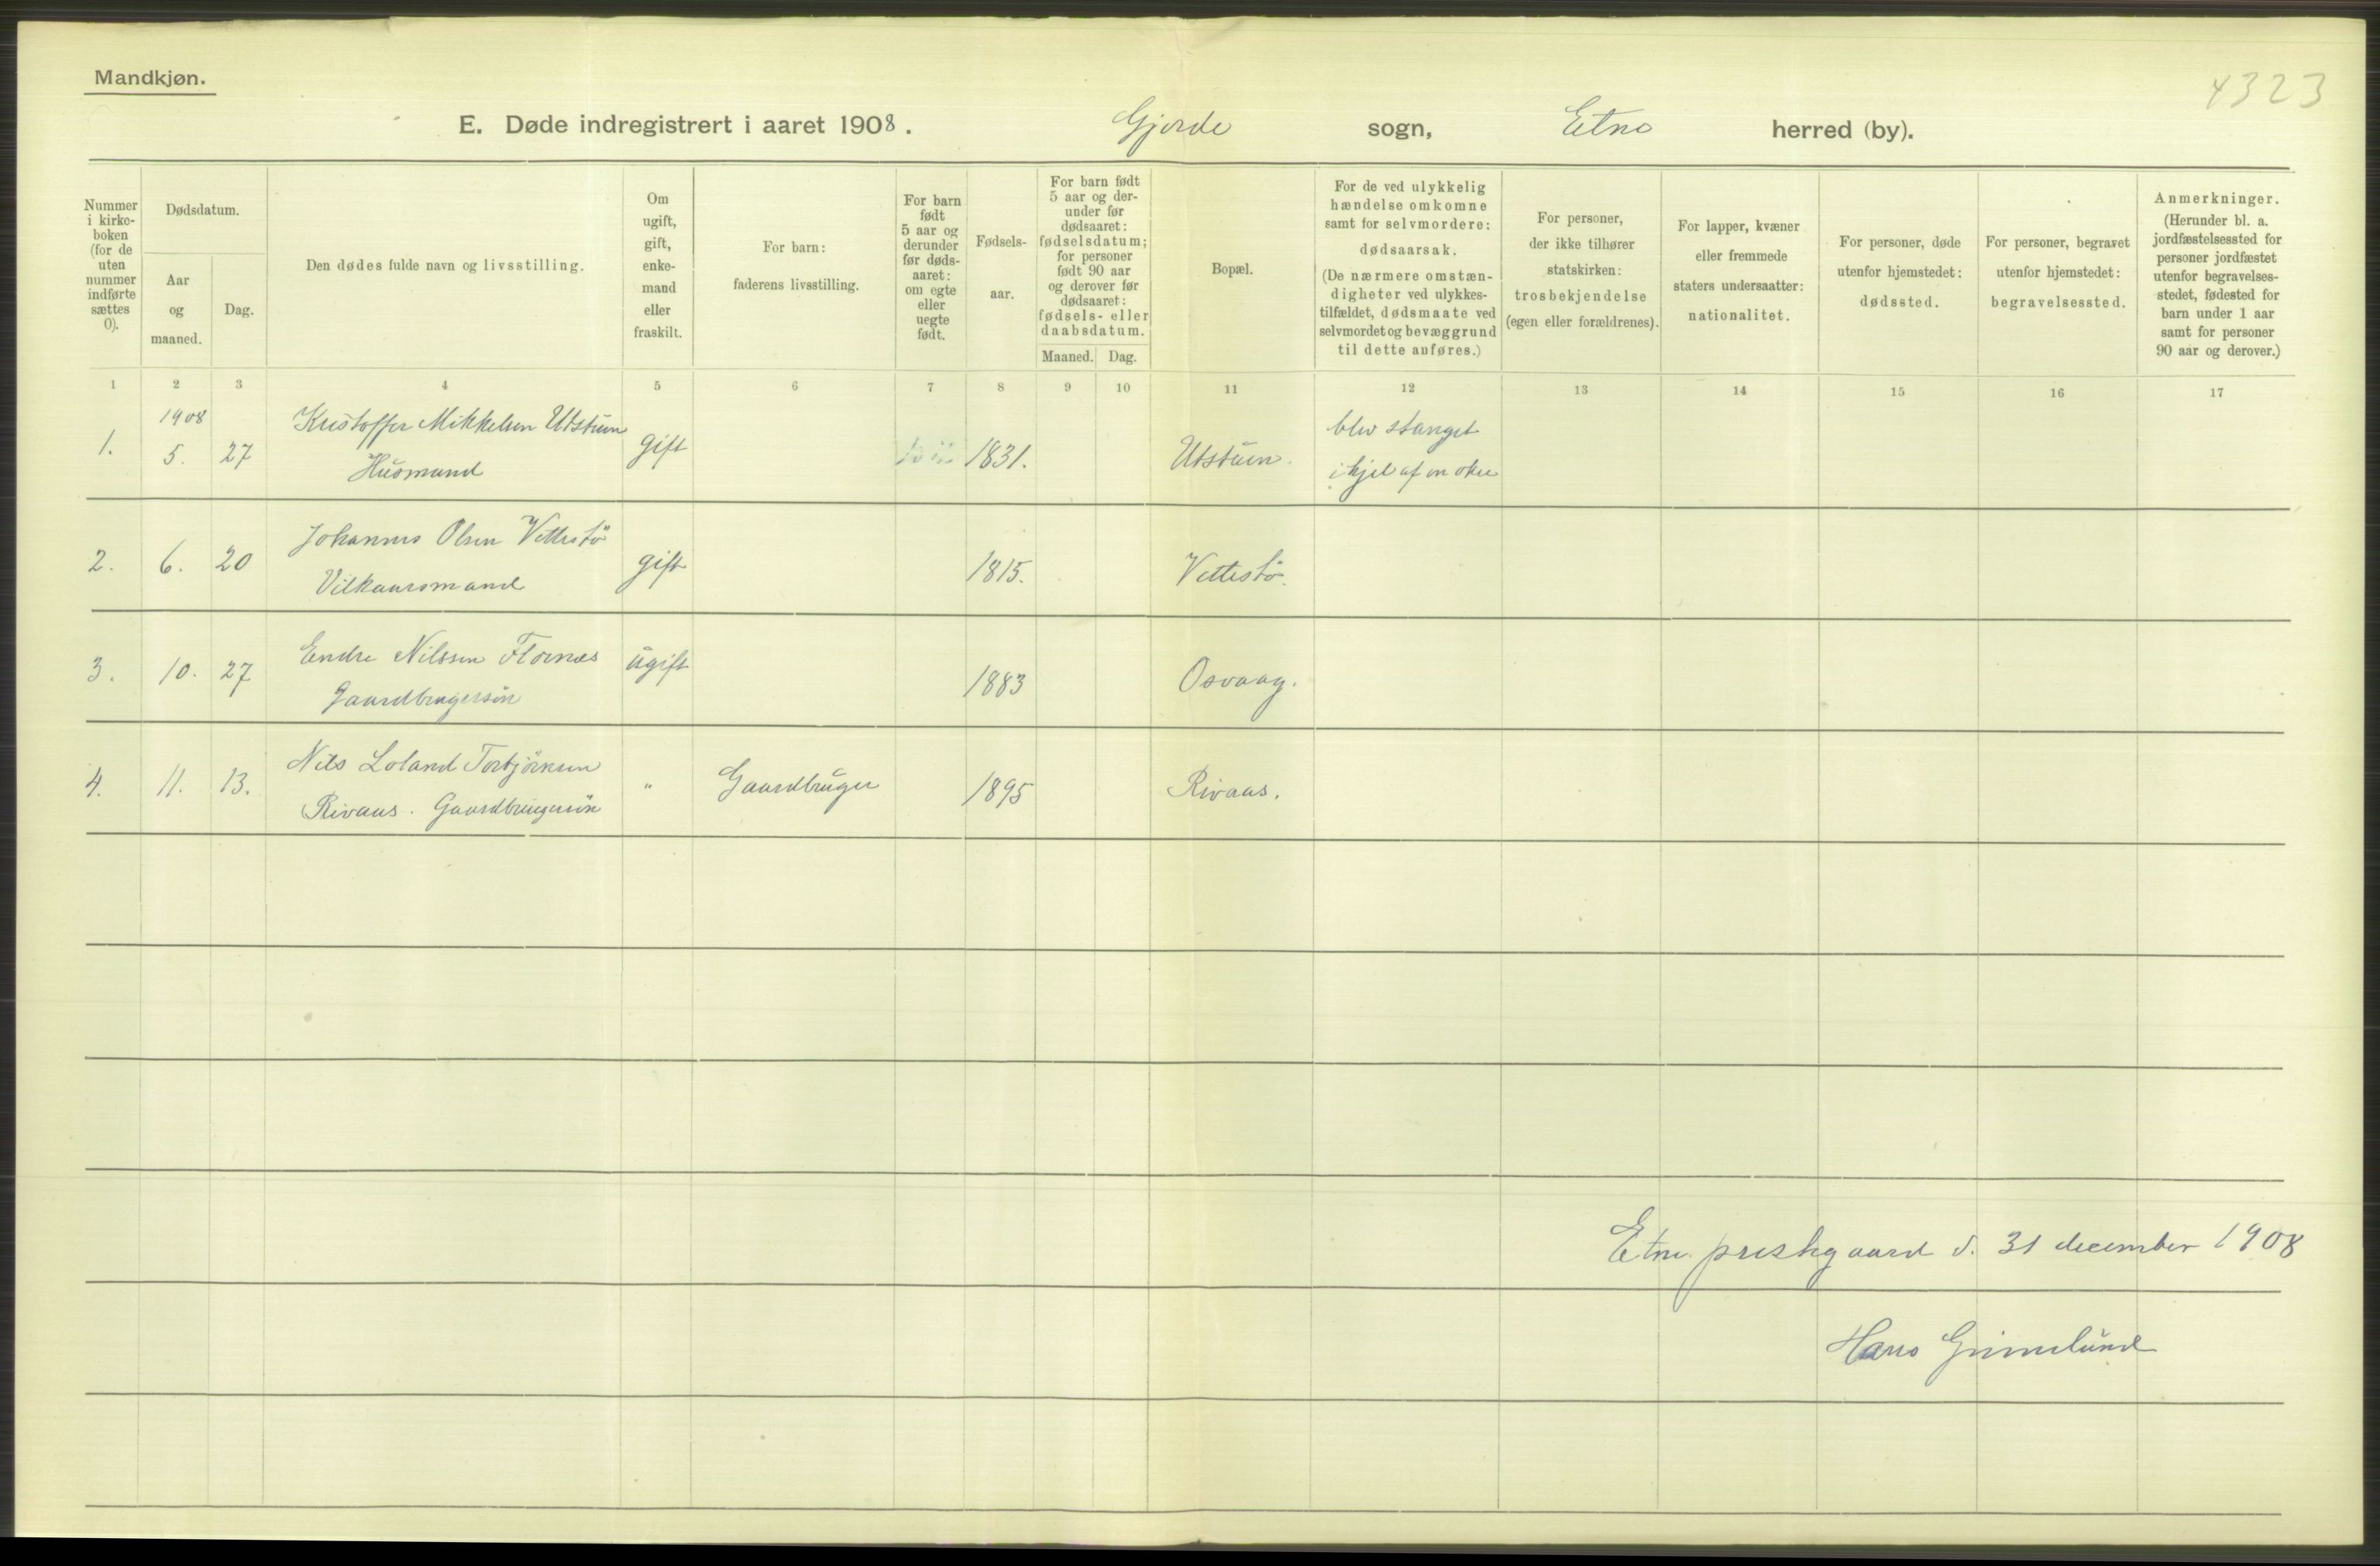 Mandkjøn.
4323
E. Døde indregistrert i aaret 1908. Gjerde sogn, Etne herred (by).
Nummer i kirke-boken (for de uten nummer indførte sættes 0).
Dødsdatum.
Aar og maaned.
Dag.
Den dødes fulde navn og livsstilling.
Om ugift, gift, enke-mand eller fraskilt.
For barn: faderens livsstilling.
For barn født 5 aar og derunder før døds-aaret: om egte eller uegte født.
Fødsels-aar.
For barn født 5 aar og der-under før dødsaaret: fødselsdatum; for personer født 90 aar og derover før dødsaaret: fødsels- eller daabsdatum.
Maaned. Dag.
Bopæl.
For de ved ulykkelig hændelse omkomne samt for selvmordere: dødsaarsak. (De nærmere omstæn-digheter ved ulykkes-tilfældet, dødsmaate ved selvmordet og bevæggrund til dette anføres.)
For personer, der ikke tilhører statskirken: trosbekjendelse (egen eller forældrenes).
For lapper, kvæner eller fremmede staters undersaatter: nationalitet.
For personer, døde utenfor hjemstedet: dødssted.
For personer, begravet utenfor hjemstedet: begravelsessted.
Anmerkninger. (Herunder bl. a. jordfæstelsessted for personer jordfæstet utenfor begravelses-stedet, fødested for barn under 1 aar samt for personer 90 aar og derover.)
1 2 3 4 5 6 7 8 9 10 11 12 13 14 15 16 17
1908
1. 5. 27 Kristoffer Mikkelsen Utstuen gift 1831. Utstuen. blev stanget
Husmand ihjel af en okse
2. 6. 20 Johannes Olsen Vettestö gift 1815. Vettestö.
Vilkaarsmand
3. 10. 27 Endre Nilssen Flornes ugift 1883 Osvaag.
Gaardbrugersön
4. 11. 13. Nils Loland Torbjörnsen " Gaardbruger 1895 Rivaas.
Rivaas. Gaardbrugersön
Etne prestegaard d. 31 december 1908
Hans Grimelund